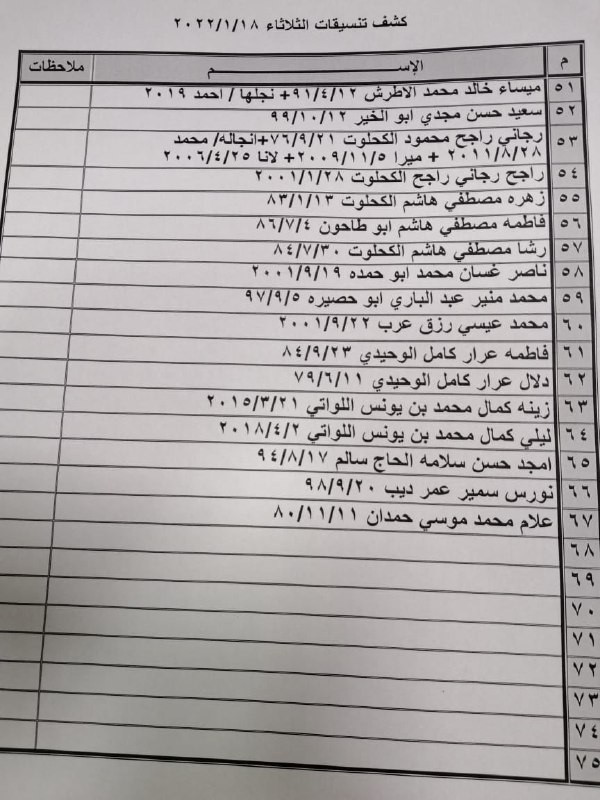 كشف تنسيقات الثلاثاء ٢٠٢٢/١/١٨
م الإســـــــــم ملاحظات
٥١ ميساء خالد محمد الاطرش ٩١/٤/١٢+ نجلها / احمد ٢٠١٩
٥٢ سعيد حسن مجدي ابو الخير ٩٩/١٠/١٢
٥٣ رجاني راجح محمود الكحلوت ٧٦/٩/٢١+انجاله/ محمد
٢٠١١/٨/٢٨ + ميرا ٢٠٠٩/١١/٥+ لانا ٢٠٠٦/٤/٢٥
٥٤ راجح رجاني راجح الكحلوت ٢٠٠١/١/٢٨
٥٥ زهره مصطفي هاشم الكحلوت ٨٣/١/١٣
٥٦ فاطمه مصطفي هاشم ابو طاحون ٨٦/٧/٤
٥٧ رشا مصطفي هاشم الكحلوت ٨٤/٧/٣٠
٥٨ ناصر غسان محمد ابو حمده ٢٠٠١/٩/١٩
٥٩ محمد منير عبد الباري ابو حصيره ٩٧/٩/٥
٦٠ محمد عيسي رزق عرب ٢٠٠١/٩/٢٢
٦١ فاطمه عرار كامل الوحيدي ٨٤/٩/٢٣
٦٢ دلال عرار كامل الوحيدي ٧٩/٦/١١
٦٣ زينه كمال محمد بن يونس اللواتي ٢٠١٥/٣/٢١
٦٤ ليلي كمال محمد بن يونس اللواتي ٢٠١٨/٤/٢
٦٥ امجد حسن سلامه الحاج سالم ٩٤/٨/١٧
٦٦ نورس سمير عمر ديب ٩٨/٩/٢٠
٦٧ علام محمد موسي حمدان ٨٠/١١/١١
٦٨
٦٩
٧٠
٧١
٧٢
٧٣
٧٤
٧٥